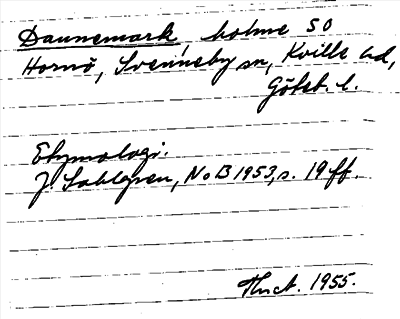 Dannemark, holme SO
Hornö, Svenneby sn, Kville hd,
Göteb. l.
Etymologi.
J Sahlgren, NoB 1953, s. 19 ff.
1955.